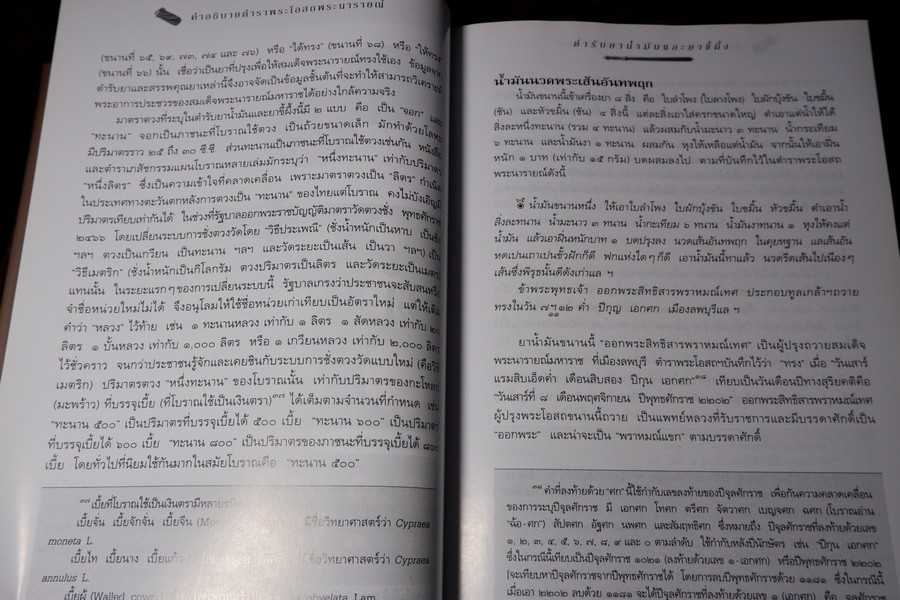 คำอธิบายตำราพระโอสถพระนารายณ์
(ขนานที่ ๖๕, ๖๙, ๗๓, ๗๔ และ ๗๖) หรือ "ได้ทรง" (ขนานที่ ๖๘) หรือ "ให้ทรง"
(ขนานที่ ๖๖) นั้น เชื่อว่าเป็นยาที่ปรุงเพื่อให้สมเด็จพระนารายณ์ทรงใช้เอง ข้อมูลจาก
ตำรับยาและสรรพคุณยาเหล่านี้จึงอาจจัดเป็นข้อมูลชั้นต้นที่จะทำให้สามารถวิเคราะห์
พระอาการประชวรของสมเด็จพระนารายณ์มหาราชได้อย่างใกล้ความจริง
มาตราตวงที่ระบุในตำรับยาน้ำมันและยาขี้ผึ้งนี้มี ๒ แบบ คือ เป็น "จอก" และ
"ทะนาน" จอกเป็นภาชนะที่โบราณใช้ตวง เป็นถ้วยขนาดเล็ก มักทำด้วยโลหะ
มีปริมาตรราว ๒๕ ถึง ๓๐ ซี.ซี. ส่วนทะนานเป็นภาชนะที่โบราณใช้ตวงเช่นกัน หนังสือ
และตำราเภสัชกรรมแผนโบราณหลายเล่มมักระบุว่า "หนึ่งทะนาน" เท่ากับปริมาตร
"หนึ่งลิตร" ซึ่งเป็นความเข้าใจที่คลาดเคลื่อน เพราะมาตราตวงเป็น "ลิตร" กำเนิด
ในประเทศทางตะวันตกหลังการตวงเป็น "ทะนาน" ของไทยแต่โบราณ คงไม่บังเอิญมี
ปริมาตรเทียบเท่ากันได้ ในช่วงที่รัฐบาลออกพระราชบัญญัติมาตราวัดตวงชั่ง พุทธศักราช
๒๔๖๖ โดยเปลี่ยนระบบการชั่งตวงวัดโดย "วิธีประเพณี" (ชั่งน้ำหนักเป็นหาบ เป็นชั่ง
ฯลฯ ตวงเป็นเกวียน เป็นทะนาน ฯลฯ และวัดระยะเป็นเส้น เป็นวา ฯลฯ) เป็น
"วิธีเมตริก" (ชั่งน้ำหนักเป็นกิโลกรัม ตวงปริมาตรเป็นลิตร และวัดระยะเป็นเมตร)
แทนนั้น ในระยะแรกๆ ของการเปลี่ยนระบบนี้ รัฐบาลเกรงว่าประชาชนจะสับสนหรือ
จำชื่อหน่วยใหม่ไม่ได้ จึงอนุโลมให้ใช้ชื่อหน่วยเก่าเทียบเป็นอัตราใหม่ แต่ให้เติม
คำว่า "หลวง" ไว้ท้าย เช่น ๑ ทะนานหลวง เท่ากับ ๑ ลิตร ๑ สัดหลวง เท่ากับ ๒๐
ลิตร ๑ บั้นหลวง เท่ากับ ๑,๐๐๐ ลิตร หรือ ๑ เกวียนหลวง เท่ากับ ๒,๐๐๐ ลิตร
ไว้ชั่วคราว จนกว่าประชาชนรู้จักและเคยชินกับระบบการชั่งตวงวัดแบบใหม่ (คือวิธี
เมตริก) ปริมาตรตวง "หนึ่งทะนาน" ของโบราณนั้น เท่ากับปริมาตรของกะโหลก
(มะพร้าว) ที่บรรจุเบี้ย (ที่โบราณใช้เป็นเงินตรา)๓๗ ได้เต็มตามจำนวนที่กำหนด เช่น
"ทะนาน ๕๐๐" เป็นปริมาตรที่บรรจุเบี้ยได้ ๕๐๐ เบี้ย "ทะนาน ๖๐๐" เป็นปริมาตร
ที่บรรจุเบี้ยได้ ๖๐๐ เบี้ย "ทะนาน ๘๐๐" เป็นปริมาตรของภาชนะที่บรรจุเบี้ยได้ ๘๐๐
เบี้ย โดยทั่วไปที่นิยมใช้กันมากในสมัยโบราณคือ "ทะนาน ๕๐๐"
๓๗ เบี้ยที่โบราณใช้เป็นเงินตรามีหลายชนิด
เบี้ยจั่น เบี้ยจักจั่น เบี้ยจีน มีชื่อวิทยาศาสตร์ว่า Cypraea
moneta L.
เบี้ยโท เบี้ยนาง เบี้ยแก้ว ชื่อวิทยาศาสตร์ว่า Cypraea
annulus L.
เบี้ยผู้ (Walled cowry) obvelata Lam.
ตำรับยาน้ำมันและยาขี้ผึ้ง
น้ำมันนวดพระเส้นอันทพฤก
น้ำมันขนานนี้เข้าเครื่องยา ๘ สิ่ง คือ ใบลำโพง (ใบลางโพง) ใบผักบุ้งขัน ใบขมิ้น
(ชัน) และหัวขมิ้น (ชัน) ๔ สิ่งนี้ แต่ละสิ่งเอาใส่ครกขนาดใหญ่ ตำเอาแต่น้ำให้ได้
สิ่งละหนึ่งทะนาน (รวม ๔ ทะนาน) แล้วผสมกับน้ำมะนาว ๓ ทะนาน น้ำกระเทียม
๖ ทะนาน และน้ำมันงา ๑ ทะนาน ผสมกัน หุงให้เหลือแต่น้ำมัน จากนั้นให้เอาฝิ่น
หนัก ๑ บาท (เท่ากับ ๑๕ กรัม) บดผสมลงไป ตามที่บันทึกไว้ในตำราพระโอสถ
พระนารายณ์ดังนี้
๏ น้ำมันขนานหนึ่ง ให้เอาใบลำโพง ใบผักบุ้งขัน ใบขมิ้น หัวขมิ้น ตำเอาน้ำ
สิ่งละทนาน น้ำมะนาว ๓ ทนาน น้ำกะเทียม ๖ ทนาน น้ำมันงาทนาน ๑ หุงให้คงแต่
น้ำมัน แล้วเอาฝิ่นหนักบาท ๑ บดปรุงลง นวดเส้นอันทพฤก ในคุยหฐาน แลเส้นอัน
หดเปนเถาเปนขั้วฝักก็ดี ฟกแห่งใดๆ ก็ดี เอาน้ำมันนี้ทาแล้ว นวดรีดเส้นไปเนืองๆ
เส้นซึ่งพิรุธนั้นดีดังเก่าแล ฯ
ข้าพระพุทธเจ้า ออกพระสิทธิสารพราหมณ์เทศ ประกอบทูลเกล้าฯถวาย
ทรงในวัน ๗ ๑๑ ฯ ๑๒ ค่ำ ปีกุญ เอกศก เมืองลพบุรีแล ฯ
ยาน้ำมันขนานนี้ "ออกพระสิทธิสารพราหมณ์เทศ" เป็นผู้ปรุงถวายสมเด็จ
พระนารายณ์มหาราช ที่เมืองลพบุรี ตำราพระโอสถฯบันทึกไว้ว่า "ทรง" เมื่อ "วันเสาร์
แรมสิบเอ็ดค่ำ เดือนสิบสอง ปีกุน เอกศก"๓๘ เทียบเป็นวันเดือนปีทางสุริยคติคือ
"วันเสาร์ที่ ๘ เดือนพฤศจิกายน ปีพุทธศักราช ๒๒๐๒" ออกพระสิทธิสารพราหมณ์เทศ
ผู้ปรุงพระโอสถขนานนี้ถวาย เป็นแพทย์หลวงที่รับราชการและมีบรรดาศักดิ์เป็น
"ออกพระ" และน่าจะเป็น "พราหมณ์แขก" ตามบรรดาศักดิ์
๓๘ คำที่ลงท้ายด้วย "ศก" นี้ใช้กำกับเลขลงท้ายของปีจุลศักราช เพื่อกันความคลาดเคลื่อน
ของการระบุปีจุลศักราช มี เอกศก โทศก ตรีศก จัตวาศก เบญจศก ฉศก (โบราณอ่าน
"ฉ้อ-ศก") สัปตศก อัฐศก นพศก และสัมฤทธิศก ซึ่งหมายถึง ปีจุลศักราชที่ลงท้ายด้วยเลข
๑, ๒, ๓, ๔, ๕, ๖, ๗, ๘, ๙ และ ๐ ตามลำดับ ใช้กำกับหลังปีนักษัตร เช่น "ปีกุน เอกศก"
ซึ่งในกรณีนี้เทียบเป็นปีจุลศักราช ๑๐๒๑ (ลงท้ายด้วยเลข ๑-เอกศก) หรือปีพุทธศักราช ๒๒๐๒
จะเทียบหาปีจุลศักราชจากปีพุทธศักราชได้ โดยการลบปีพุทธศักราชด้วย ๑๑๘๑ ซึ่งในกรณีนี้
เมื่อเอา ๒๒๐๒ ลบด้วย ๑๑๘๑ จะได้ปีจุลศักราชที่ลงท้ายด้วยเลข ๑ (เอกศก) คือ จุลศักราช